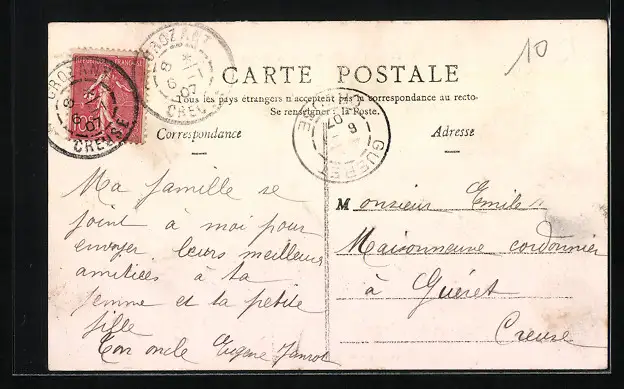 10
CROZANT
8
6
07
CREUSE
CROZANT
8
6
07
CREUSE
CARTE POSTALE
Tous les pays étrangers n'acceptent pas la correspondance au recto
Se renseigner à la Poste.
GUERET
6
07
CREUSE
Correspondance
Adresse
Ma famille se
joint à moi pour
envoyer leurs meilleurs
amitiées à ta
femme et ta petite
fille
Ton oncle Eugène
Monsieur Emile
Maisonneuve cordonnier
à Guéret
Creuse